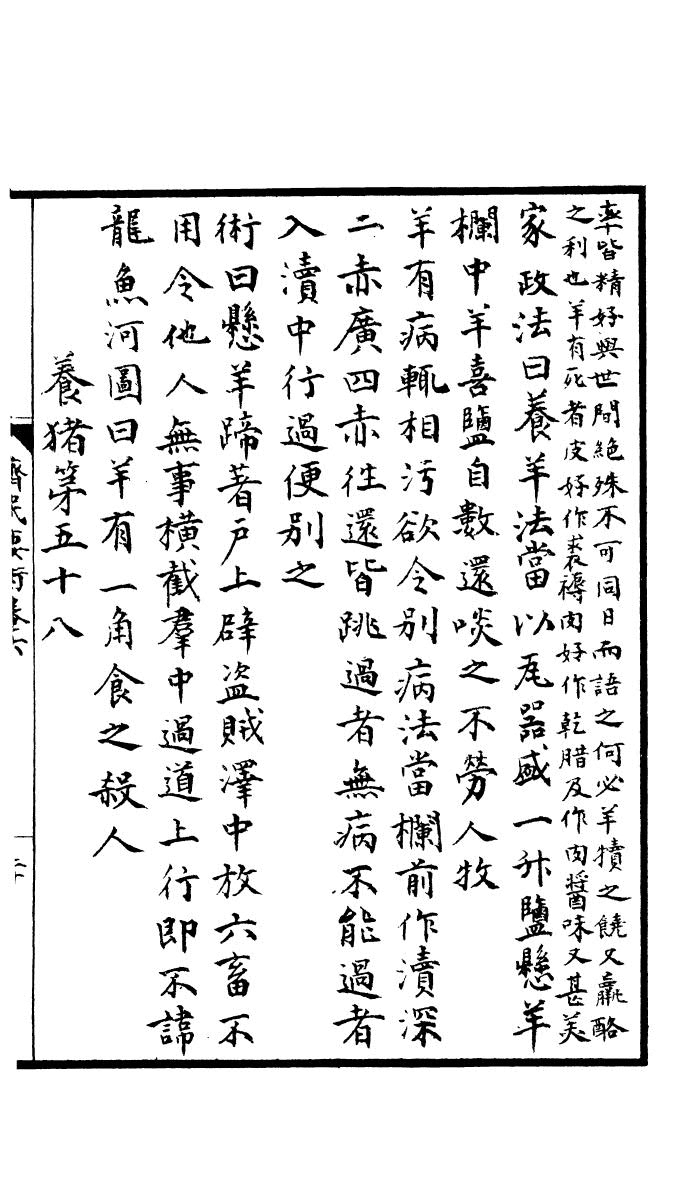 率皆精好與世間絶殊不可同日而語之何必羊犢之饒又羸酪
之利也羊有死者皮好作裘褥肉好作乾腊及作肉醬味又甚美
家政法曰養羊法當以瓦器盛一升鹽懸羊
欄中羊喜鹽自數還啖之不勞人牧
羊有病輒相污欲令别病法當欄前作瀆深
二赤廣四赤往還皆跳過者無病不能過者
入瀆中行過便别之
術曰懸羊蹄著戶上辟盜賊澤中放六畜不
用令他人無事橫截羣中過道上行即不諱
龍魚河圖曰羊有一角食之殺人
養猪第五十八
齊民要術卷六
二十